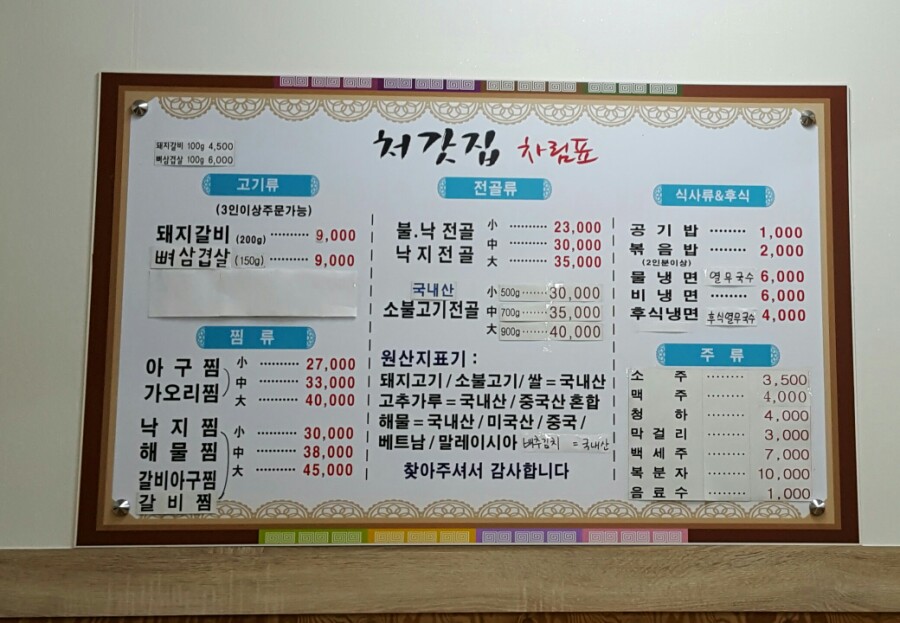 처갓집 차림표
돼지갈비 100g 4,500
뼈삼겹살 100g 6,000
고기류
(3인이상주문가능)
돼지갈비 (200g) ·········· 9,000
뼈삼겹살 (150g) ·········· 9,000
찜류
아구찜 小 ·········· 27,000
가오리찜 中 ·········· 33,000
大 ·········· 40,000
낙지찜 小 ·········· 30,000
해물찜 中 ·········· 38,000
갈비아구찜 大 ·········· 45,000
갈비찜
전골류
불.낙전골 小 ·········· 23,000
낙지전골 中 ·········· 30,000
大 ·········· 35,000
국내산 小 500g ······· 30,000
소불고기전골 中 700g ······· 35,000
大 900g ······· 40,000
원산지표기 :
돼지고기 / 소불고기 / 쌀 = 국내산
고추가루 = 국내산 / 중국산 혼합
해물 = 국내산 / 미국산 / 중국 /
베트남 / 말레이시아 배추김치 = 국내산
찾아주셔서 감사합니다
식사류&후식
공기밥 ········ 1,000
볶음밥 ········ 2,000
(2인분이상)
물냉면 열무국수 6,000
비냉면 ········ 6,000
후식냉면 후식열무국수 4,000
주류
소주 ········ 3,500
맥주 ········ 4,000
청하 ········ 4,000
막걸리 ········ 3,000
백세주 ········ 7,000
복분자 ········ 10,000
음료수 ········ 1,000